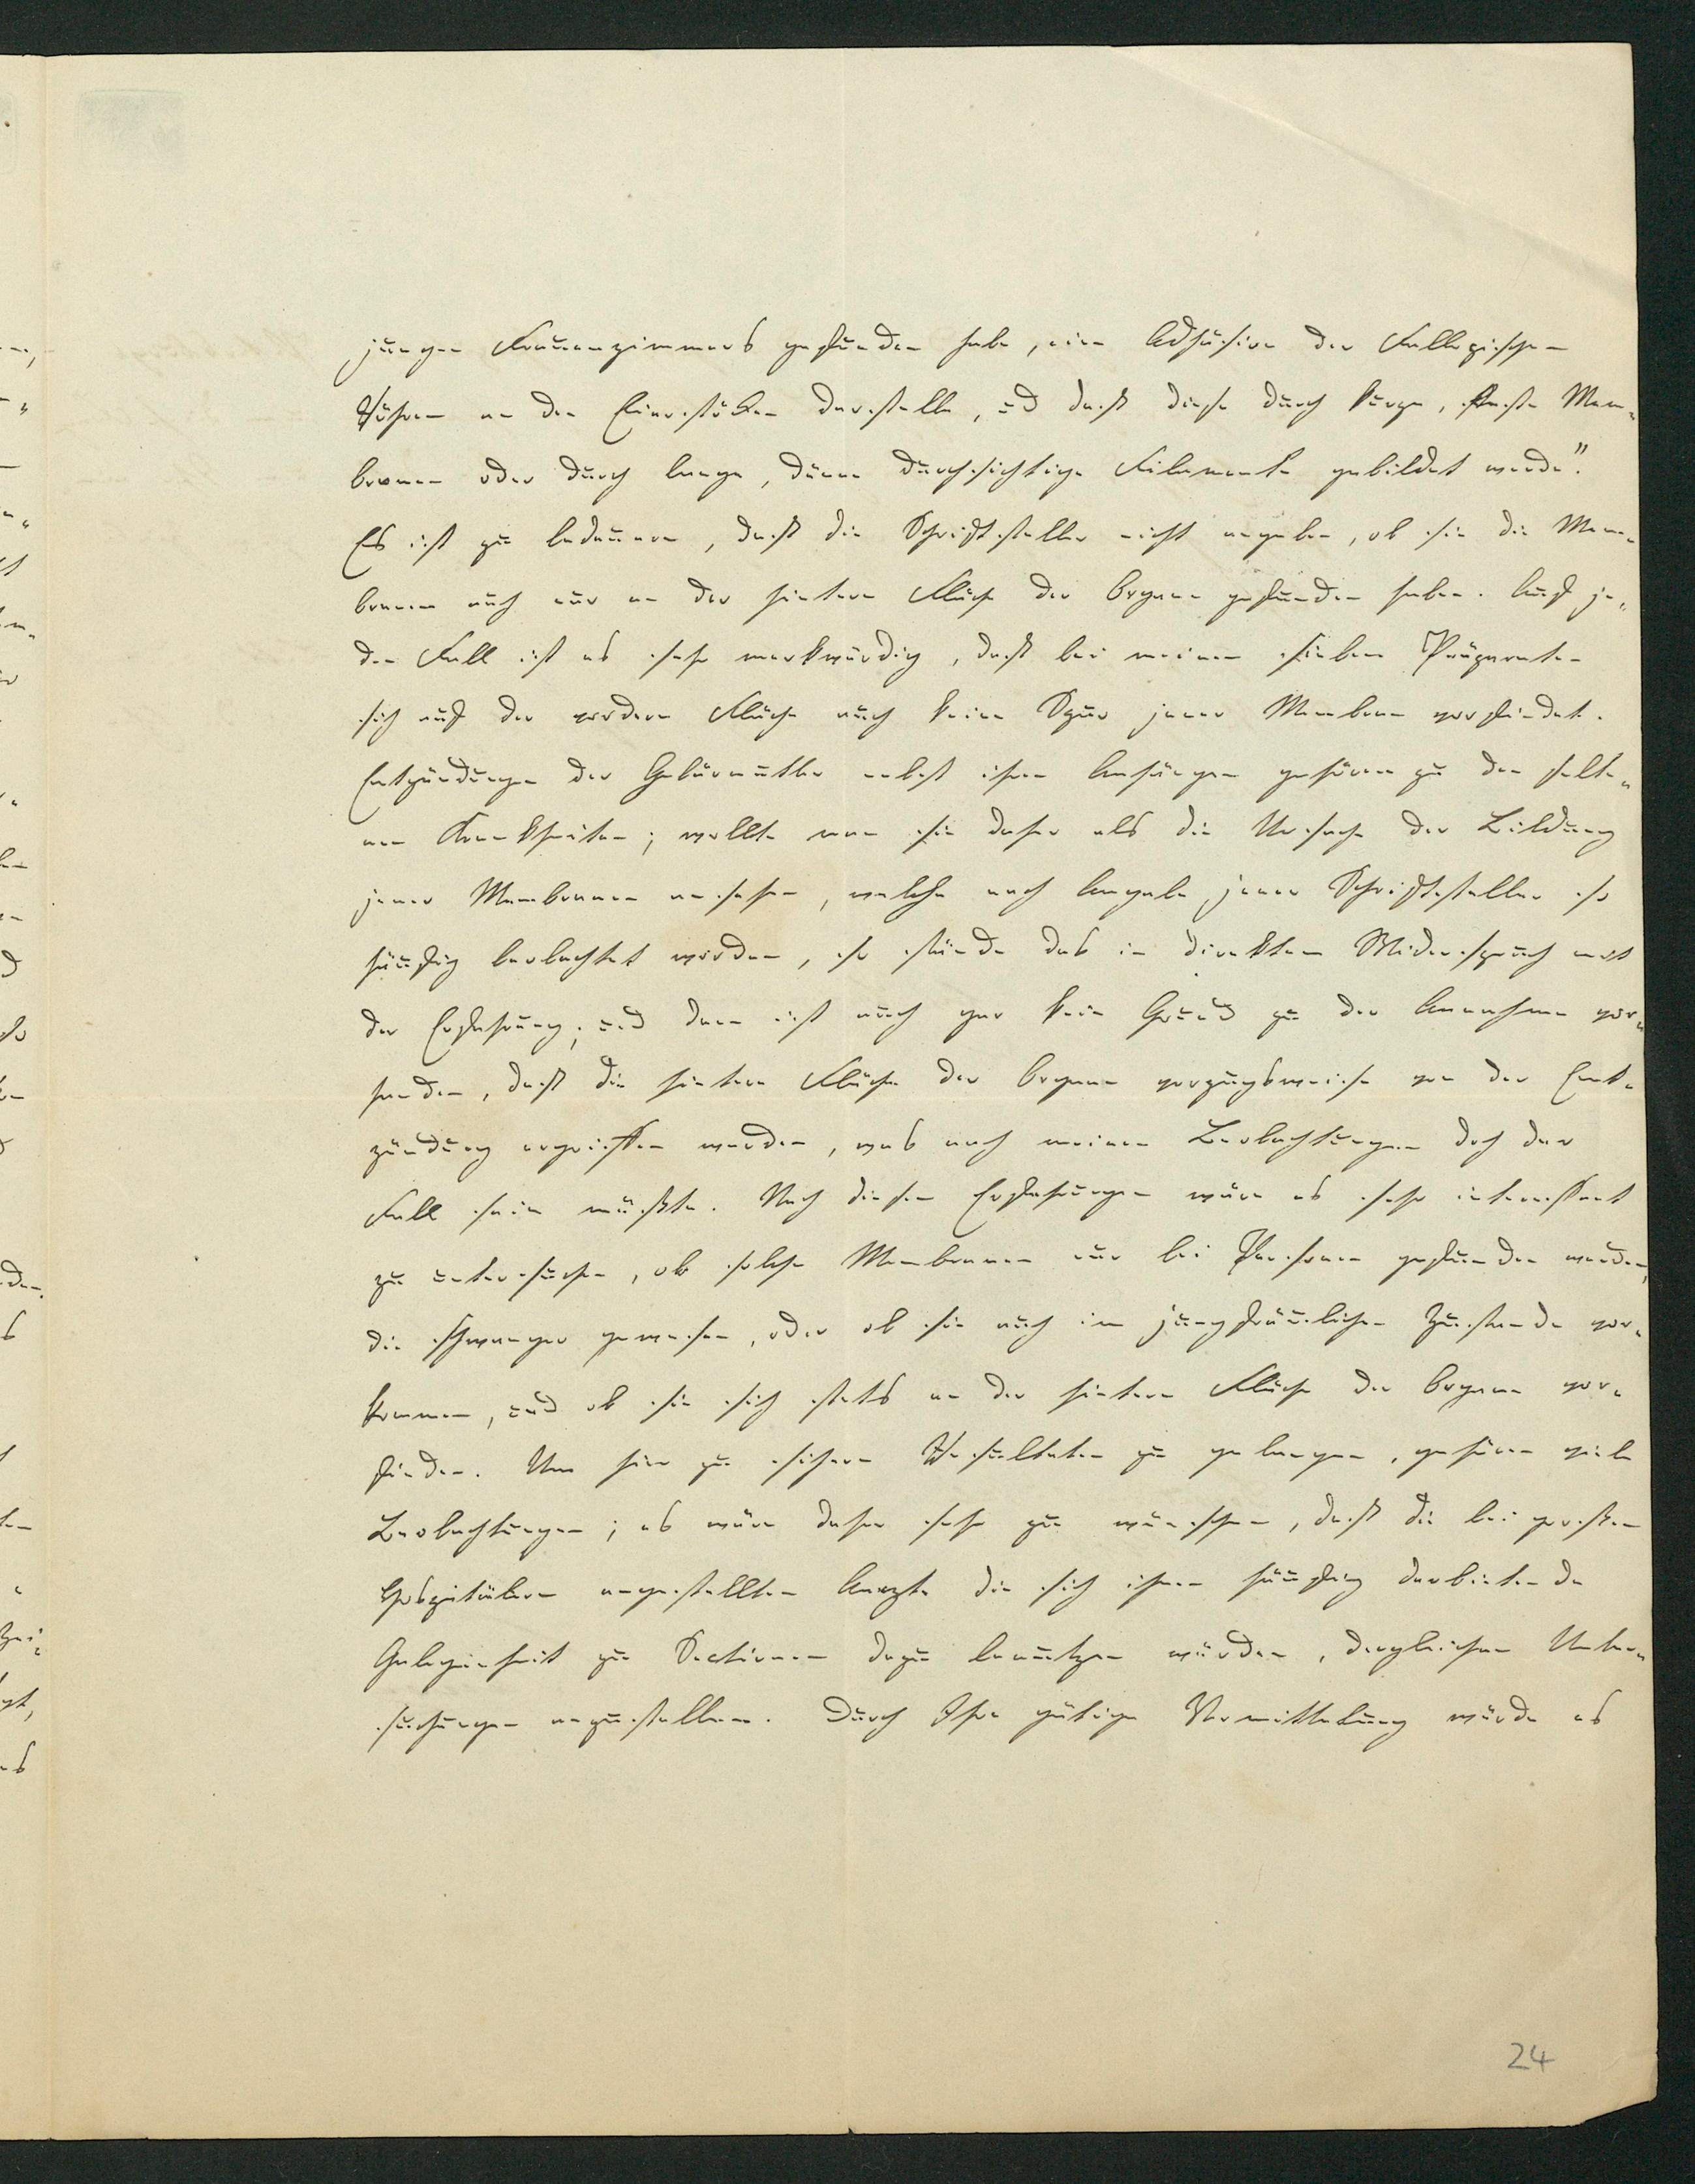 jungen Frauenzimmers gefunden habe, eine Adhäsion der Fallopischen
Röhren an den Eierstöcken darstelle, und daß diese durch kurze, feste Mem-
branen oder durch lange, dünne durchsichtige Filamente gebildet werde".
Es ist zu bedauern, daß die Schriftsteller nicht angeben, ob sie die Mem-
branen auch nur an der hintern Fläche der Organe gefunden haben. Auf je-
den Fall ist es sehr merkwürdig, daß bei meinen sieben Präparaten
sich auf der vordern Fläche auch keine Spur jener Membran vorfindet.
Entzündungen der Gebärmutter nebst ihren Anhängen gehören zu den selte-
nen Krankheiten; wollte man sie daher als die Ursache der Bildung
jener Membranen ansehen, welche nach Angabe jener Schriftsteller so
häufig beobachtet worden, so stände das in direktem Widerspruch mit
der Erfahrung; und dann ist auch gar kein Grund zu der Annahme vor-
handen, daß die hintere Fläche der Organe vorzugsweise von der Ent-
zündung ergriffen werden, was nach meinen Beobachtungen doch der
Fall sein müßte. Nach diesen Erfahrungen wäre es sehr interessant
zu untersuchen, ob solche Membranen nur bei Personen gefunden werden,
die schwanger gewesen, oder ob sie auch im jungfräulichen Zustande vor-
kommen, und ob sie sich stets an der hintern Fläche der Organe vor-
finden. Um hier zu sichern Resultaten zu gelangen, gehören viele
Beobachtungen; es wäre daher sehr zu wünschen, daß die bei großen
Hospitälern angestellten Aerzte die sich ihnen häufig darbietende
Gelegenheit zu Sectionen dazu benutzen würden, dergleichen Unter-
suchungen anzustellen. Durch Ihre gütige Vermittelung würde es
24